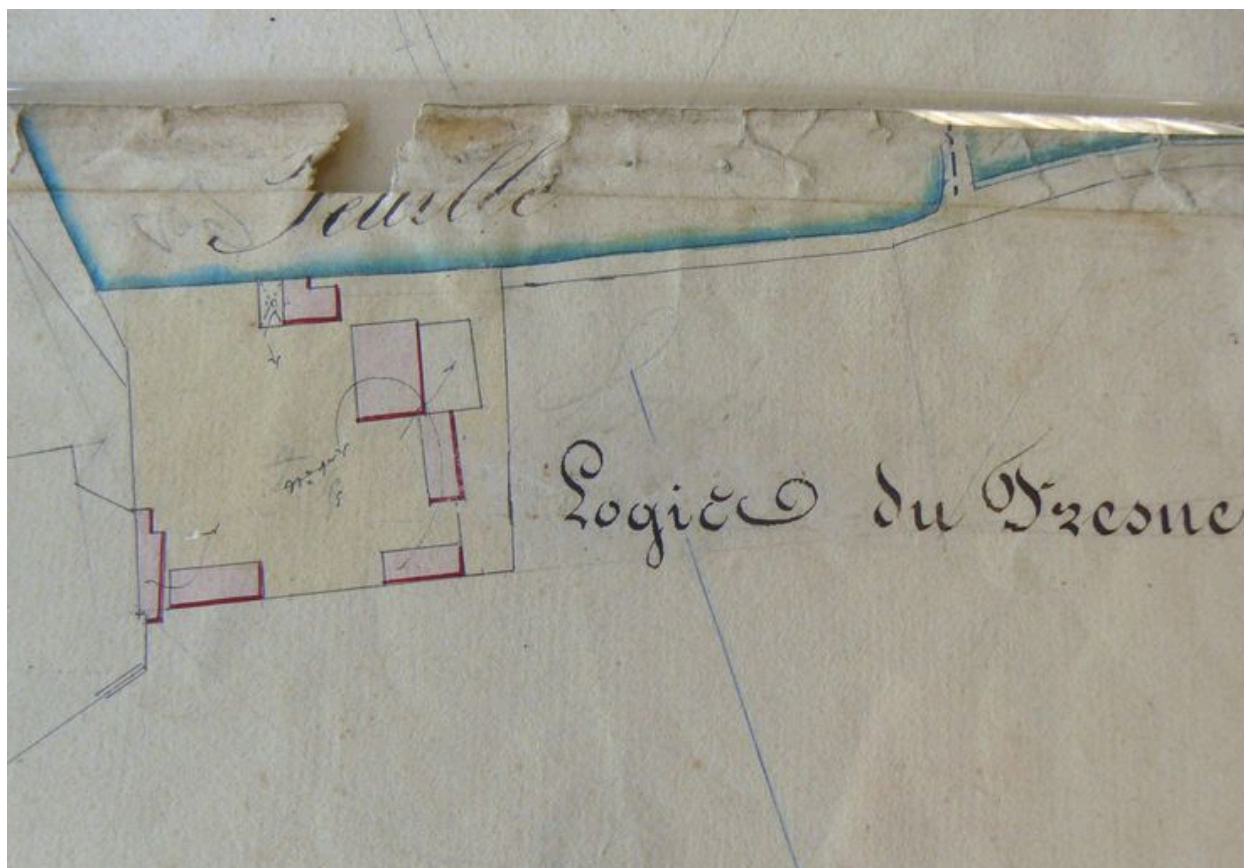 Feuille
Logie du Fresne